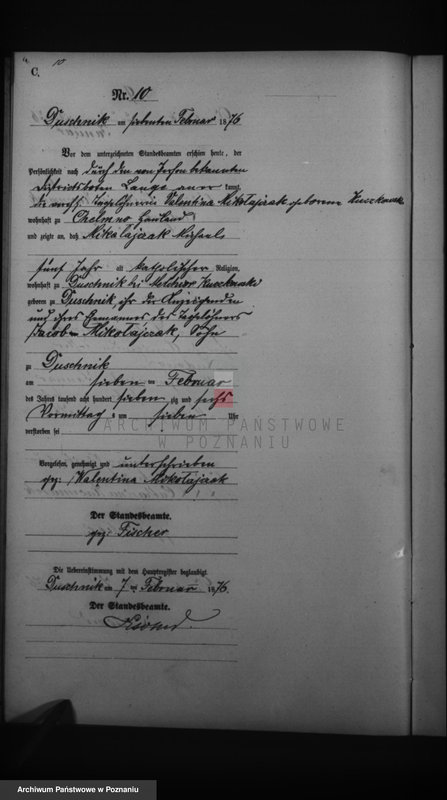 C.
10
Nr. 10
Duschnik am siebenten Februar 1876
Vor dem unterzeichneten Standesbeamten erschien heute, der
Persönlichkeit nach durch den von Person bekannten
Districtsboten Lange aner kannt,
die verehl. Tagelöhnerin Valentina Mikołajczak geborene Kuczkowska
wohnhaft zu Chelmno Hauland
und zeigte an, daß Mikołajczak Michael
fünf Jahr alt, katholischer Religion,
wohnhaft zu Duschnik bei Melchior Kuczkowski
geboren zu Duschnik, ihr der Anzeigenden
und ihres Ehemannes des Tagelöhners
Jacob Mikołajczak, Sohn
zu Duschnik
am sieben ten Februar
des Jahres tausend acht hundert sieben zig und sechs
Vormittags um sieben Uhr
verstorben sei
ARCHIWUM PAŃSTWOWE
W POZNANIU
Vorgelesen, genehmigt und unterschrieben
gez. Walentina Mikołajczak
Der Standesbeamte.
gez. Fischer
Die Uebereinstimmung mit dem Hauptregister beglaubigt
Duschnik am 7 ten Februar 1876.
Der Standesbeamte.
Archiwum Państwowe w Poznaniu